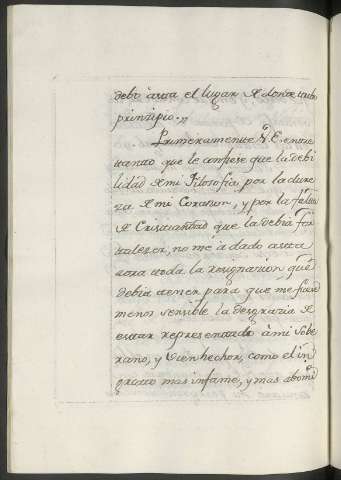 debo àsta el lugar de donde tubo
principio.
Primeramente V. E. entre
tanto que le confiese que la debi
lidad de mi Filosofia, por la dure
za de mi Corazon, y por la falta
de Cristiandad que la debia for
talezer, no me à dado asta
aora toda la resignazion que
debia tener para que me fuese
menos sensible la desgrazia de
estar representado à mi Sobe
rano, y Vienhechor, como el in
grato mas infame, y mas abomi